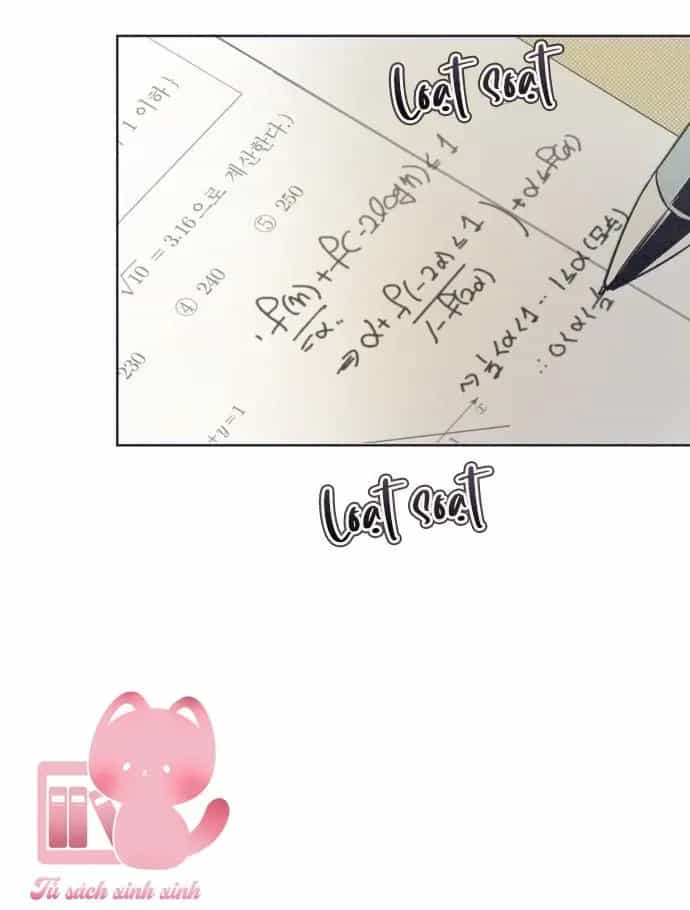 Loạt soạt
, 1 이하)
√10 = 3.16 으로 계산한다.)
④ 240
⑤ 250
230
+y=1
f(n) + f(-2logn) ≤ 1
=α
⇒ α + f(-2α) ≤ 1
1-f(2α)
) + α ≤ f(α)
⇒ 1/2 < α < 1 ... 1 ≤ α (모순)
∴ 0 < α < 1/2
x
1
Loạt soạt
Tủ sách xinh xinh